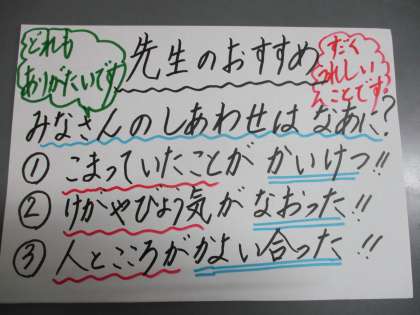 どれも
ありがたいです
先生のおすすめ
だく
うれしい
ことです!
みなさんのしあわせは なあに?
① こまっていたことが かいけつ!!
② けがやびょう気が なおった!!
③ 人とこころが かよい合った!!